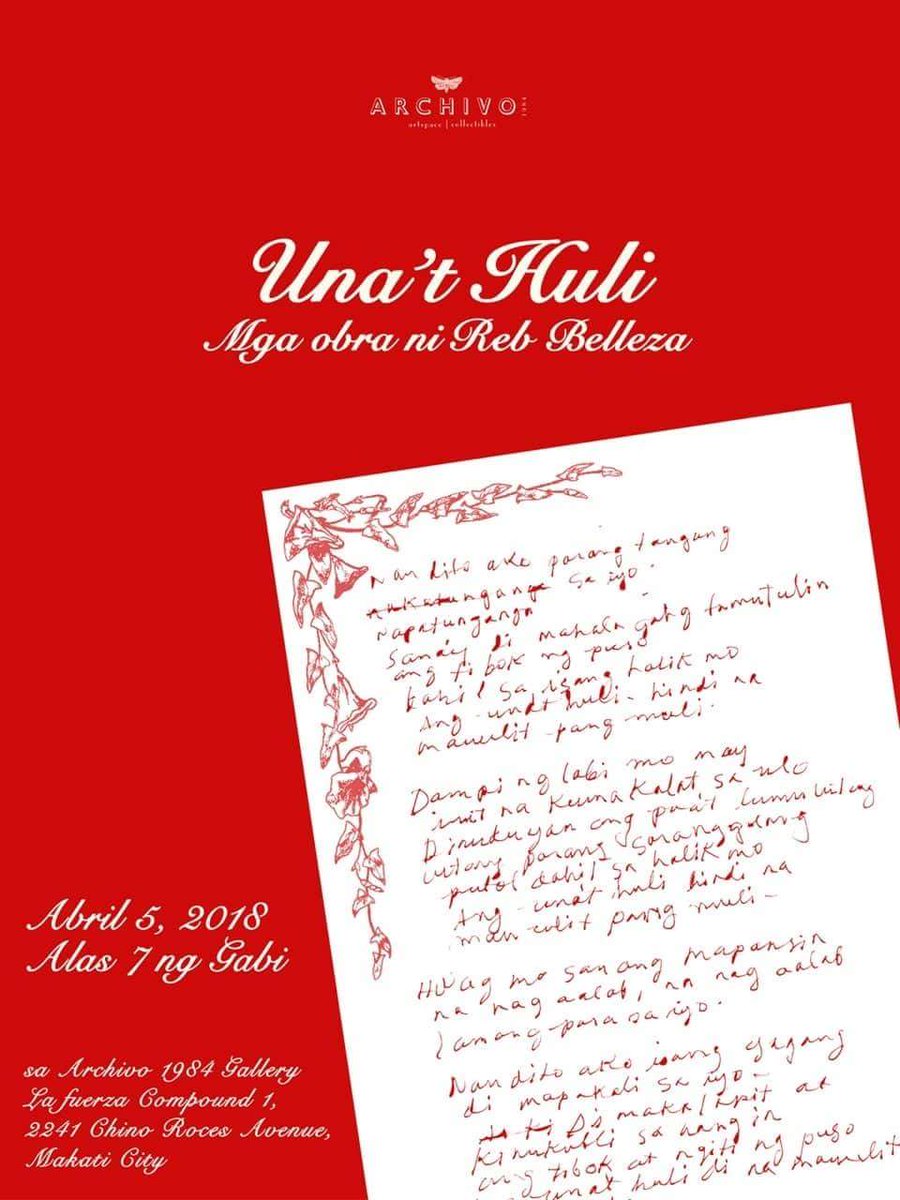 ARCHIVO 1984
artspace | collectibles
Una't Huli
Mga obra ni Reb Belleza
Nandito ako parang tangang
napatunganga sa iyo.
Sandy di mahala gang tumutulin
ang tibok ng puso
sa isang halik mo
Ang unat huli hindi na
mauulit pang muli.
Dampi ng labi mo may
init na kumakalat sa ulo
Dinuduyan ang paa't
utang parang saranggolang
putol dahil sa halik mo
Ang unat huli hindi na
mauulit pang muli
Huwag mo sanang mapansin
na nag aalab, na nag aalab
lamang para sa iyo.
Nandito ako isang
di mapakali sa iyo
Di makalapit at
kinukubli sa hangin
ang tibok at ngiti ng puso
unat huli di na mauulit
Abril 5, 2018
Alas 7 ng Gabi
sa Archivo 1984 Gallery
La fuerza Compound 1,
2241 Chino Roces Avenue,
Makati City